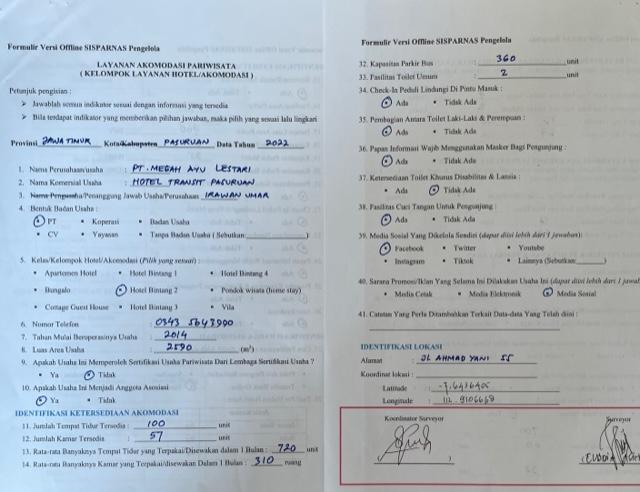 Formulir Versi Offline SISPARNAS Pengelola
LAYANAN AKOMODASI PARIWISATA
( KELOMPOK LAYANAN HOTEL/AKOMODASI )
Petunjuk pengisian :
➢ Jawablah semua indikator sesuai dengan informasi yang tersedia
➢ Bila terdapat indikator yang memberikan pilihan jawaban, maka pilih yang sesuai lalu lingkari
Provinsi JAWA TIMUR Kota/Kabupaten PASURUAN Data Tahun 2022
1. Nama Perusahaan/usaha : PT. MEGAH AYU LESTARI
2. Nama Komersial Usaha : HOTEL TRANSIT PASURUAN
3. Nama Pengusaha/Penanggung Jawab Usaha/Perusahaan IRAWAN UMAR
4. Bentuk Badan Usaha :
• PT • Koperasi • Badan Usaha
• CV • Yayasan • Tanpa Badan Usaha ( Sebutkan )
5. Kelas/Kelompok Hotel/Akomodasi (Pilih yang sesuai) :
• Apartemen Hotel • Hotel Bintang 1 • Hotel Bintang 4
• Bungalo • Hotel Bintang 2 • Pondok wisata (home stay)
• Cottage Guest House • Hotel Bintang 3 • Vila
6. Nomor Telefon : 0343 5643900
7. Tahun Mulai Beroperasinya Usaha : 2014
8. Luas Area Usaha : 2590 (m²)
9. Apakah Usaha Ini Memperoleh Sertifikasi Usaha Pariwisata Dari Lembaga Sertifikasi Usaha ?
• Ya • Tidak
10. Apakah Usaha Ini Menjadi Anggota Asosiasi
• Ya • Tidak
IDENTIFIKASI KETERSEDIAAN AKOMODASI
11. Jumlah Tempat Tidur Tersedia : 100 unit
12. Jumlah Kamar Tersedia : 57 unit
13. Rata-rata Banyaknya Tempat Tidur yang Terpakai/Disewakan dalam 1 Bulan : 720 unit
14. Rata-rata Banyaknya Kamar yang Terpakai/disewakan Dalam 1 Bulan : 310 ruang
Formulir Versi Offline SISPARNAS Pengelola
32. Kapasitas Parkir Bus : 360 unit
33. Fasilitas Toilet Umum : 2 unit
34. Check-In Peduli Lindungi Di Pintu Masuk :
• Ada • Tidak Ada
35. Pembagian Antara Toilet Laki-Laki & Perempuan :
• Ada • Tidak Ada
36. Papan Informasi Wajib Menggunakan Masker Bagi Pengunjung :
• Ada • Tidak Ada
37. Ketersediaan Toilet Khusus Disabilitas & Lansia :
• Ada • Tidak Ada
38. Fasilitas Cuci Tangan Untuk Pengunjung :
• Ada • Tidak Ada
39. Media Sosial Yang Dikelola Sendiri (dapat diisi lebih dari 1 jawaban):
• Facebook • Twitter • Youtube
• Instagram • Tiktok • Lainnya (Sebutkan )
40. Sarana Promosi/Iklan Yang Selama Ini Dilakukan Usaha Ini (dapat diisi lebih dari 1 jawab
• Media Cetak • Media Elektronik • Media Sosial
41. Catatan Yang Perlu Ditambahkan Terkait Data-data Yang Telah diisi :
IDENTIFIKASI LOKASI
Alamat : JL AHMAD YANI 55
Koordinat lokasi :
Latitude : -7.6426405
Longitude : 112.9106668
Koordinator Surveyor
Surveyor